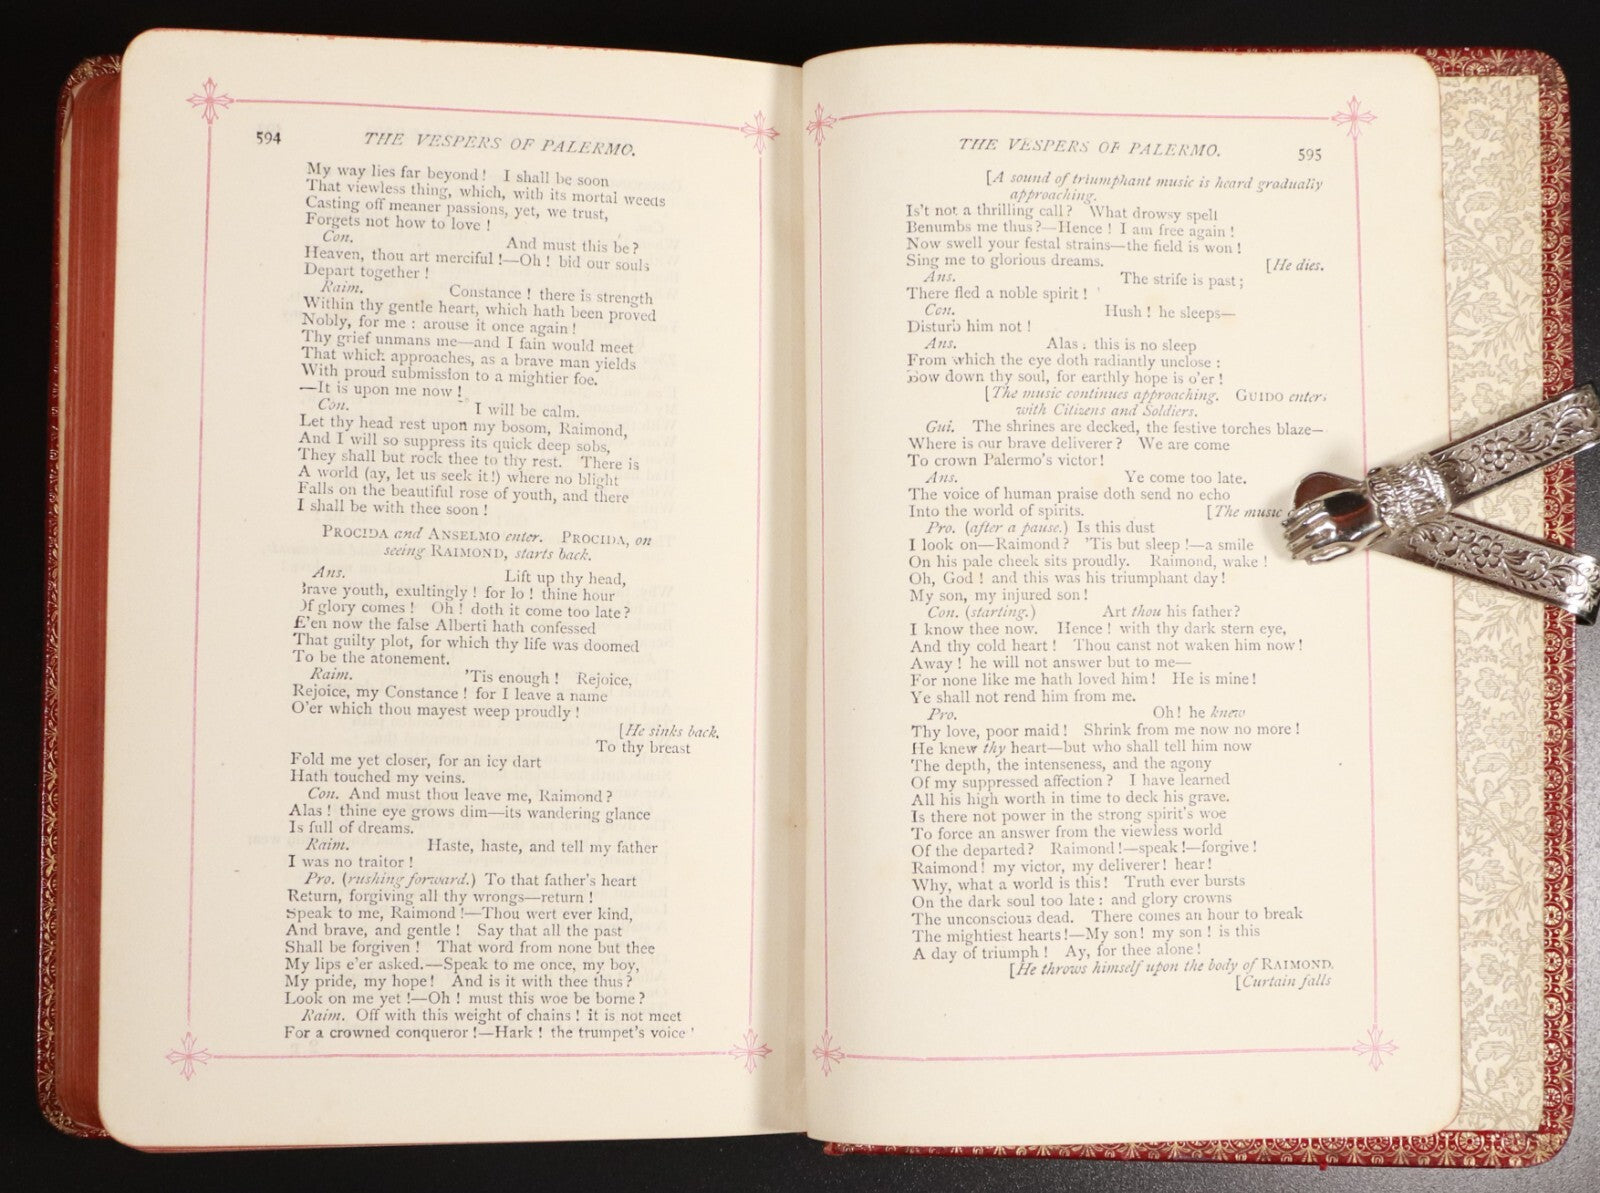 594
THE VESPERS OF PALERMO.
My way lies far beyond! I shall be soon
That viewless thing, which, with its mortal weeds
Casting off meaner passions, yet, we trust,
Forgets not how to love!
Con. And must this be?
Heaven, thou art merciful!—Oh! bid our souls
Depart together!
Raim. Constance! there is strength
Within thy gentle heart, which hath been proved
Nobly, for me: arouse it once again!
Thy grief unmans me—and I fain would meet
That which approaches, as a brave man yields
With proud submission to a mightier foe.
—It is upon me now!
Con. I will be calm.
Let thy head rest upon my bosom, Raimond,
And I will so suppress its quick deep sobs,
They shall but rock thee to thy rest. There is
A world (ay, let us seek it!) where no blight
Falls on the beautiful rose of youth, and there
I shall be with thee soon!
PROCIDA and ANSELMO enter. PROCIDA, on
seeing RAIMOND, starts back.
Ans. Lift up thy head,
Brave youth, exultingly! for lo! thine hour
Of glory comes! Oh! doth it come too late?
E'en now the false Alberti hath confessed
That guilty plot, for which thy life was doomed
To be the atonement.
Raim. 'Tis enough! Rejoice,
Rejoice, my Constance! for I leave a name
O'er which thou mayest weep proudly!
[He sinks back.
To thy breast
Fold me yet closer, for an icy dart
Hath touched my veins.
Con. And must thou leave me, Raimond?
Alas! thine eye grows dim—its wandering glance
Is full of dreams.
Raim. Haste, haste, and tell my father
I was no traitor!
Pro. (rushing forward.) To that father's heart
Return, forgiving all thy wrongs—return!
Speak to me, Raimond!—Thou wert ever kind,
And brave, and gentle! Say that all the past
Shall be forgiven! That word from none but thee
My lips e'er asked.—Speak to me once, my boy,
My pride, my hope! And is it with thee thus?
Look on me yet!—Oh! must this woe be borne?
Raim. Off with this weight of chains! it is not meet
For a crowned conqueror!—Hark! the trumpet's voice!
THE VESPERS OF PALERMO.
595
[A sound of triumphant music is heard gradually
approaching.
Is't not a thrilling call? What drowsy spell
Benumbs me thus?—Hence! I am free again!
Now swell your festal strains—the field is won!
Sing me to glorious dreams. [He dies.
Ans. The strife is past;
There fled a noble spirit!
Con. Hush! he sleeps—
Disturb him not!
Ans. Alas! this is no sleep
From which the eye doth radiantly unclose:
Bow down thy soul, for earthly hope is o'er!
[The music continues approaching. GUIDO enters
with Citizens and Soldiers.
Gui. The shrines are decked, the festive torches blaze—
Where is our brave deliverer? We are come
To crown Palermo's victor!
Ans. Ye come too late.
The voice of human praise doth send no echo
Into the world of spirits. [The music
Pro. (after a pause.) Is this dust
I look on—Raimond? 'Tis but sleep!—a smile
On his pale cheek sits proudly. Raimond, wake!
Oh, God! and this was his triumphant day!
My son, my injured son!
Con. (starting.) Art thou his father?
I know thee now. Hence! with thy dark stern eye,
And thy cold heart! Thou canst not waken him now!
Away! he will not answer but to me—
For none like me hath loved him! He is mine!
Ye shall not rend him from me.
Pro. Oh! he knew
Thy love, poor maid! Shrink from me now no more!
He knew thy heart—but who shall tell him now
The depth, the intenseness, and the agony
Of my suppressed affection? I have learned
All his high worth in time to deck his grave.
Is there not power in the strong spirit's woe
To force an answer from the viewless world
Of the departed? Raimond!—speak!—forgive!
Raimond! my victor, my deliverer! hear!
Why, what a world is this! Truth ever bursts
On the dark soul too late: and glory crowns
The unconscious dead. There comes an hour to break
The mightiest hearts!—My son! my son! is this
A day of triumph! Ay, for thee alone!
[He throws himself upon the body of RAIMOND.
[Curtain falls